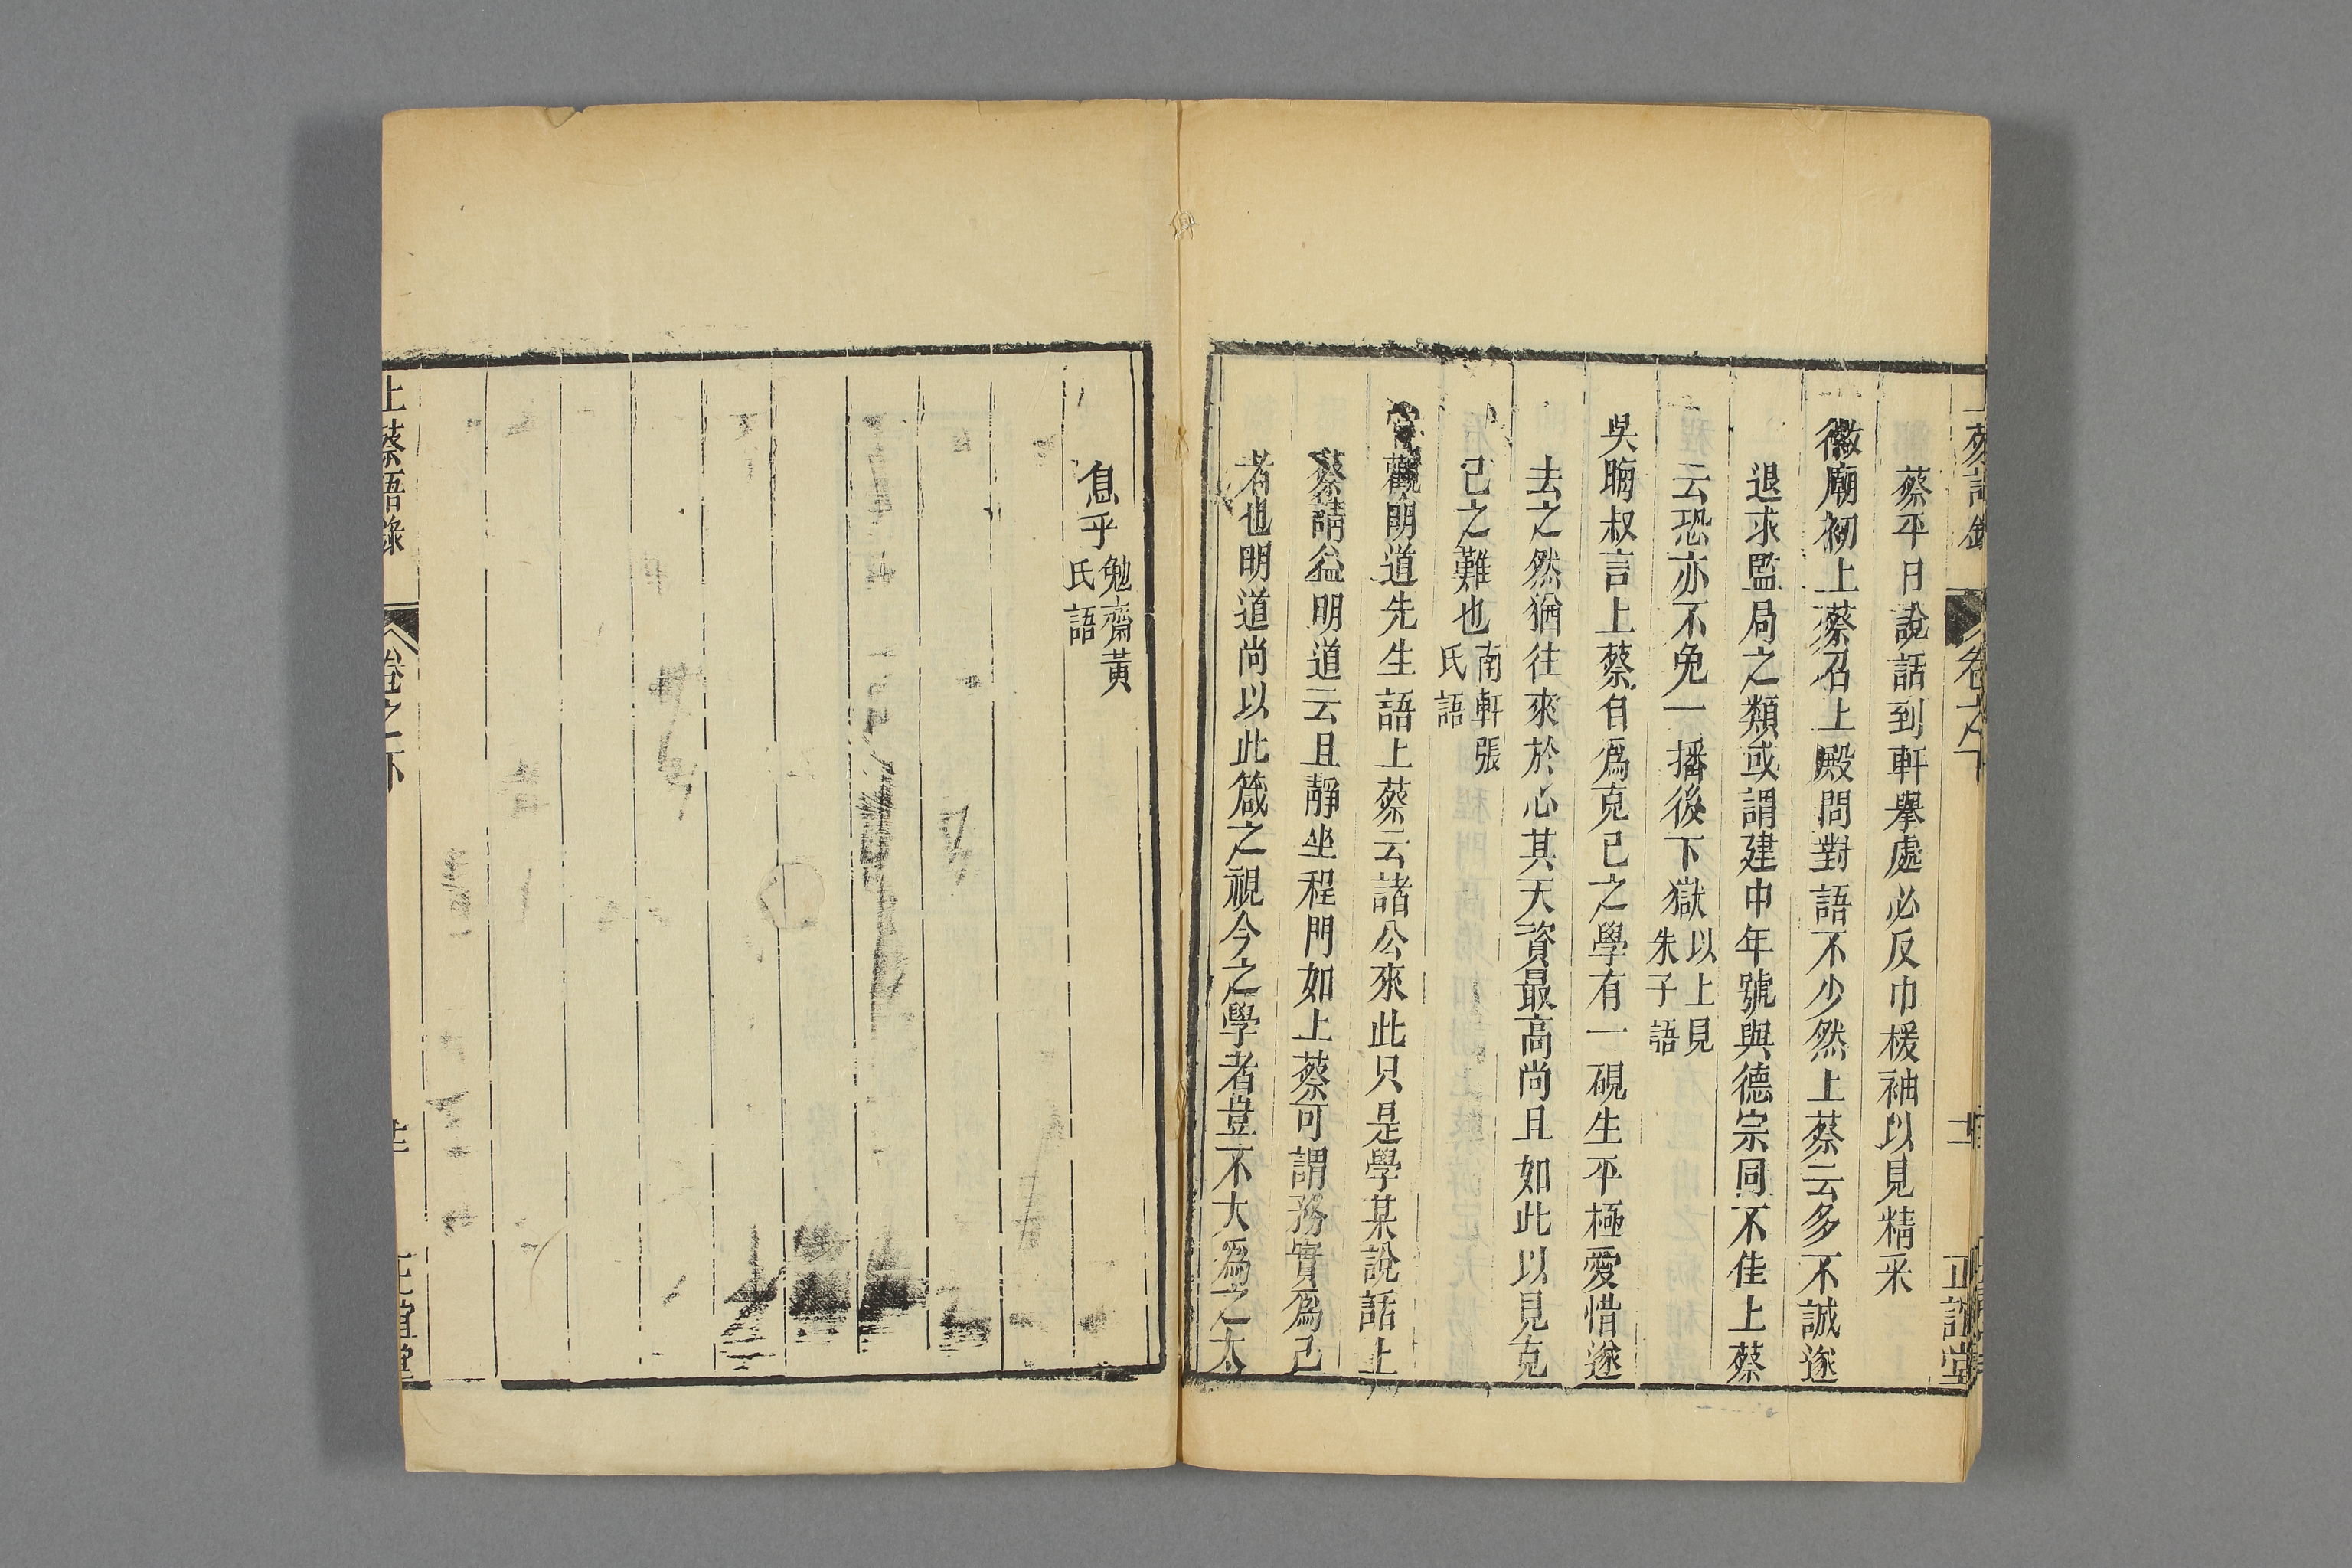 蔡平日說話到軒舉處必反巾楥袖以見精采
徽廟初上蔡召上殿問對語不少然上蔡云多不誠遂
退求監局之類或謂建中年號與德宗同不佳上蔡
云恐亦不免一播後下獄以上見朱子語
吳晦叔言上蔡自爲克己之學有一硯生平極愛惜遂
去之然猶往來於心其天資最高尚且如此以見克
己之難也南軒張氏語
觀明道先生語上蔡云諸公來此只是學某說話上
蔡請益明道云且靜坐程門如上蔡可謂務實爲己
者也明道尚以此箴之視今之學者豈不大爲之太
息乎勉齋黃氏語
上蔡語錄
卷之下
正誼堂